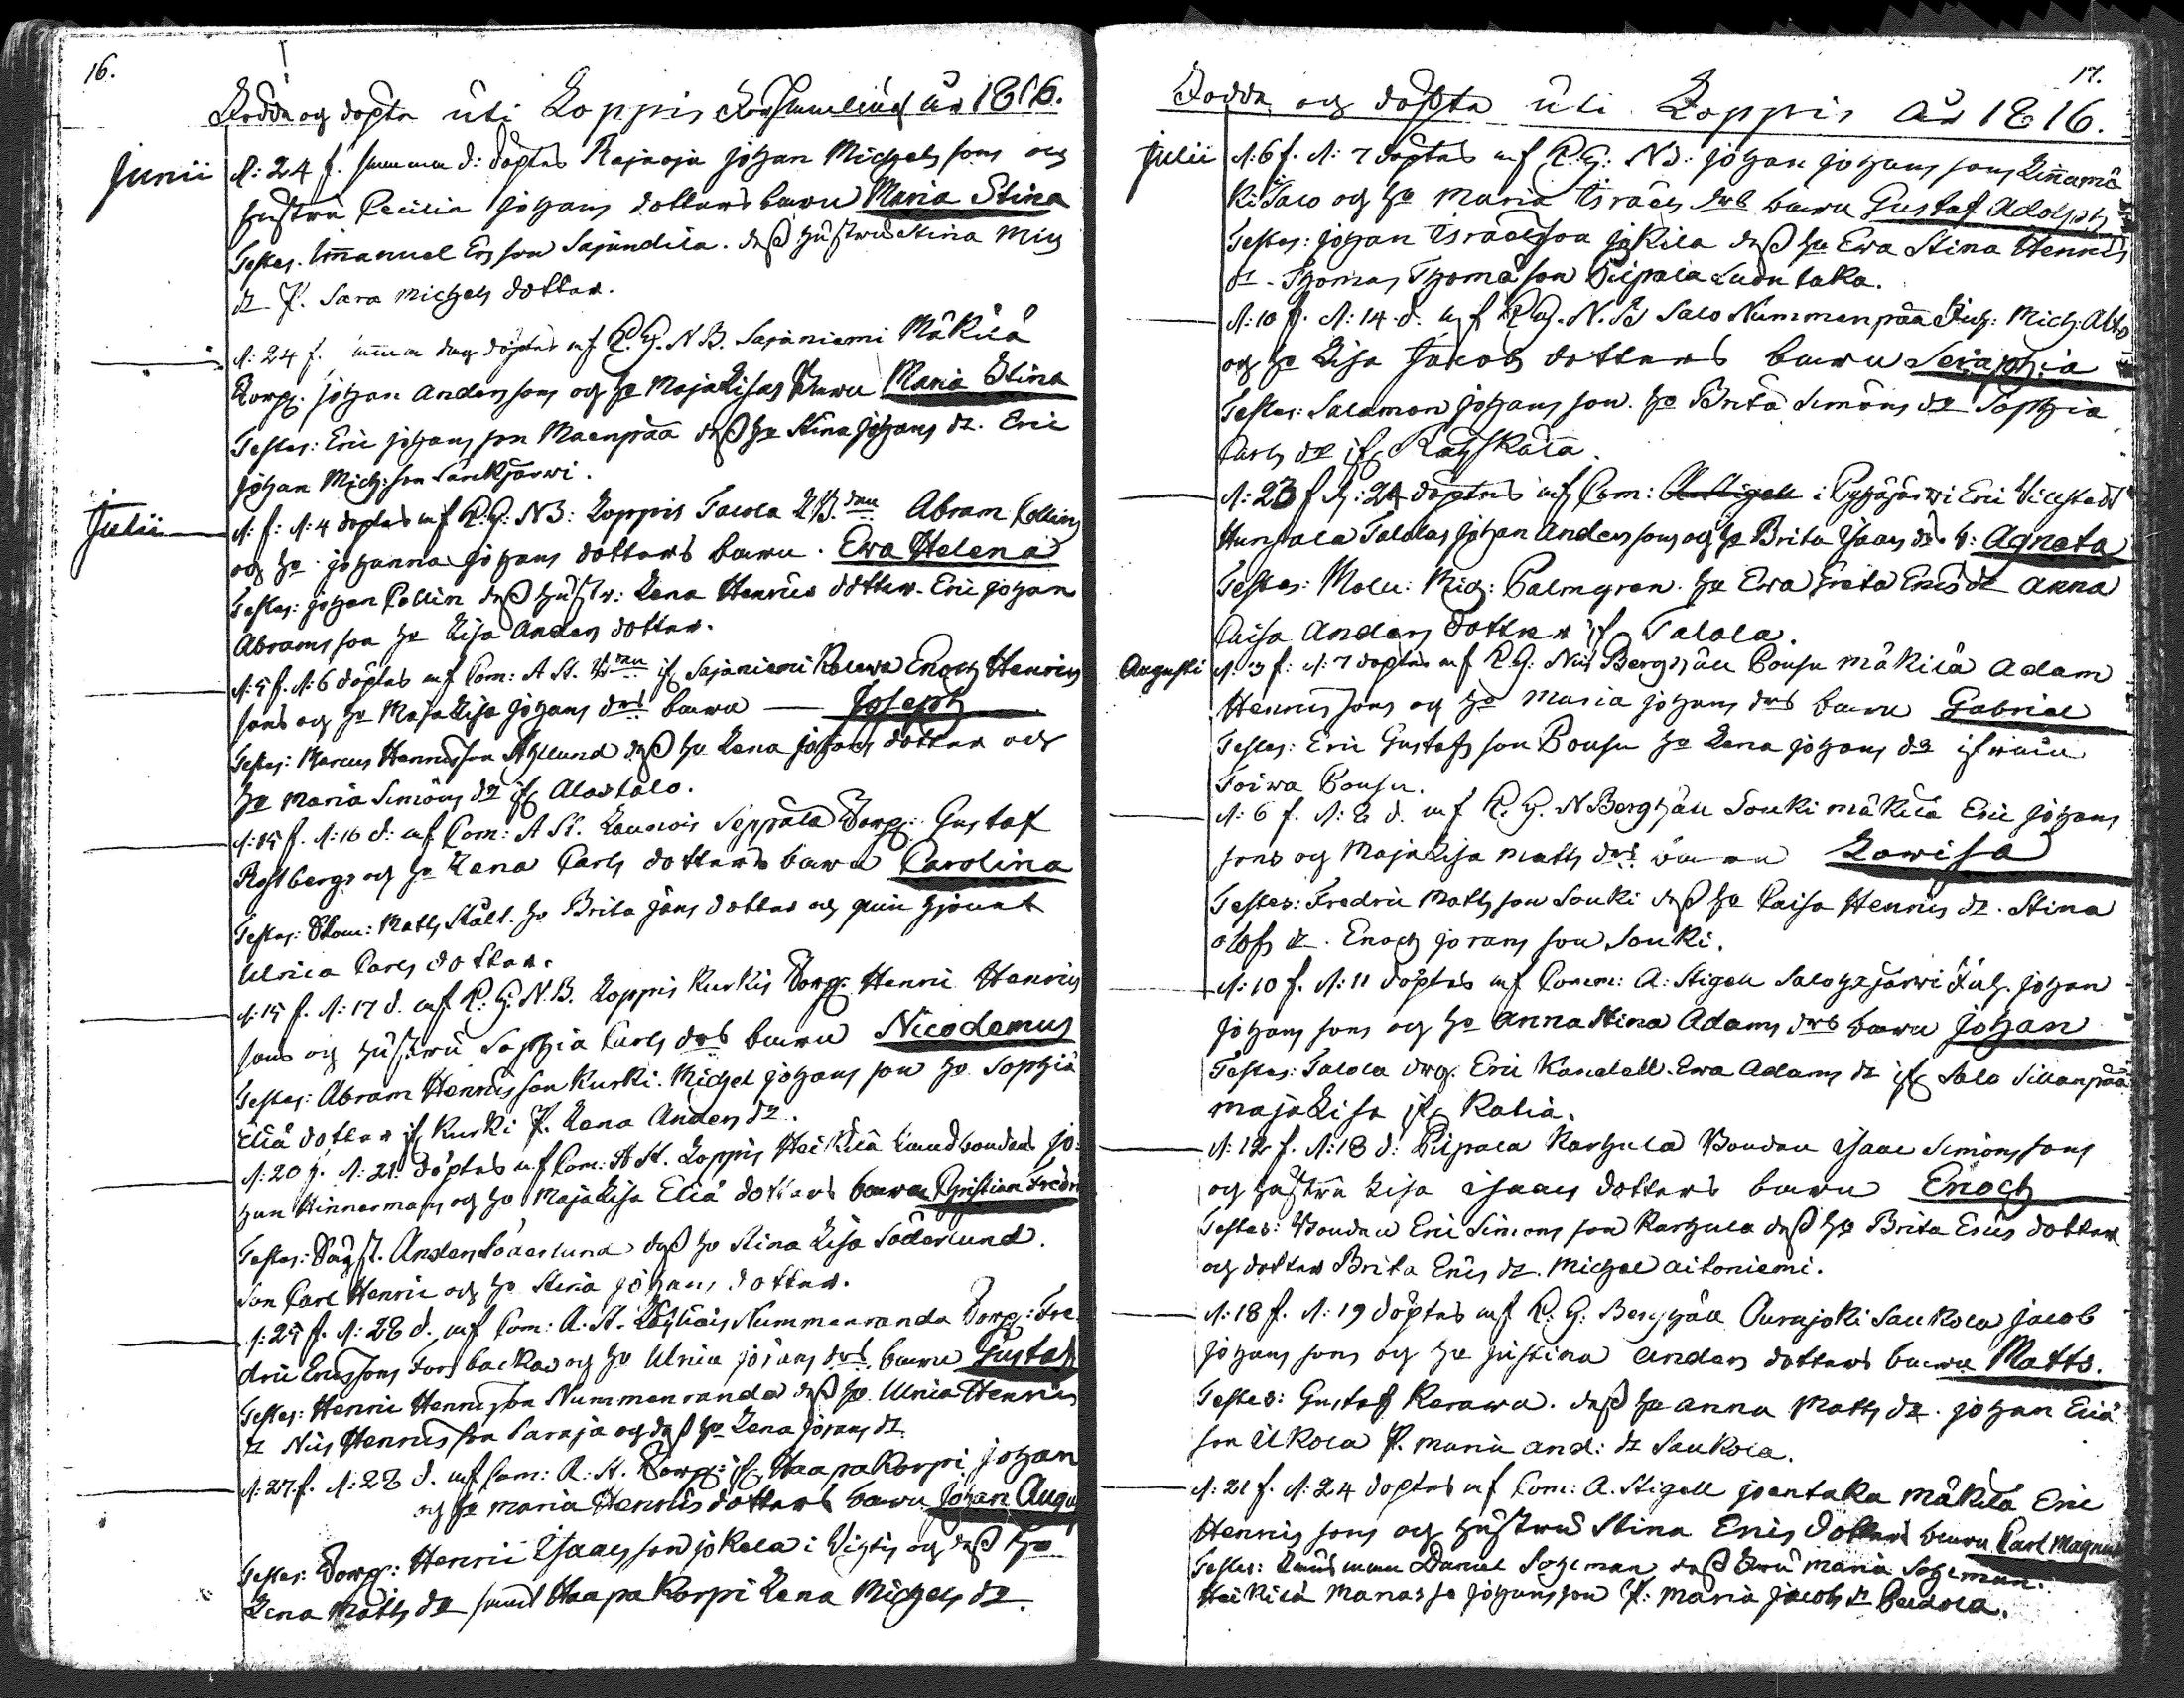 16.
Födda och döpta uti Loppis Församling år 1816.
Junii
d: 24 f. samma d: döptes Rajaoja Johan Michels sons och
hustru Cecilia Johans dotters barn Maria Stina
Testes. Immanuel Ersson Sajundila. dess hustru Stina Mich
dr P. Sara Michels dotter.
d: 24 f. samma dag döptes af P. G. N B. Sajaniemi Mäkilä
Torp. Johan Anderssons och h. Maja Lisas barn Maria Stina
Testes: Eric Johans son Maenpää dess h. Stina Johans dr. Eric
Johan Mich: son Särckjärwi.
Julii
d: f: d: 4 döptes af P. G: N B: Loppis Talola Abram Collins
och h. Johanna Johans dotters barn. Ewa Helena
Testes: Johan Collin dess hustr: Lena Henrics dotter. Eric Johan
Abrams son h. Lisa Anders dotter.
d: 5 f. d: 6 döptes af Com: A St. if. Sajaniemi Enoch Henrics
sons och h. Maja Lisa Johans drs barn — Joseph
Testes: Marcus Henricsson dess h. Lena Johans dotter och
h. Maria Simons dr if. Alastalo.
d: 15 f. d: 16 d: af Com: A St. Launois Seppälä Torp: Gustaf
Rostbergs och h. Lena Carls dotters barn Carolina
Testes: Mats Stålt. h. Brita Jöns dotter och
Ulrica Carls dotter.
d: 15 f. d: 17 d. af P. G. N. B. Loppis Kurkis Torp. Henric Henrics
sons och hustru Sophia Carls drs barn Nicodemus
Testes: Abram Henricsson Kurki. Michel Johans son h. Sophia
Eliä dotter if. Kurki P. Lena Anders dr.
d: 20 f. d: 21. döptes af Com: A St. Loppis Heikilä Landbonden Jo-
han Hinnermans och h. Maja Lisa Eliä dotters barn Christian Fredri
Testes: Anders Söderlund dess h. Stina Lisa Söderlund.
Son Carl Henric och h. Stina Johans dotter.
d: 25 f. d: 28 d. af Com: A. St. Nummenranda Torp: Fre
dric Ericssons Forsbackas och h. Ulrica Jörans drs. barn Gustaf
Testes: Henric Henricsson Nummenranda dess h. Ulrica Henrics
dr Nils Henricsson Saraja och dess h. Lena Jörans dr.
d: 27. f. d: 28 d. af Com: A. St. Torp: if. Haapakorpi Johan
och h. Maria Henrics dotters barn Johan Augu
Testes: Torp: Henric Isacsson Jokela i Wichtis och dess h.
Lena Matts dr samt Haapakorpi Lena Michels dr.
17.
Födda och döpta uti Loppis år 1816.
Julii
d: 6 f. d: 7 döptes af P. G: N B: Johan Johans sons Linnamä
ki Salo och h. Maria Israels drs barn Gustaf Adolph
Testes: Johan Israelsson Jokila dess h. Ewa Stina Henrics
dr. Thomas Thomasson Pilpala Luontaka.
d: 10 f. d: 14. d: af P G. N. B Salo Nummenpää Inh: Mich: Abr
och h. Lisa Jacobs dotters barn Seraphia
Testes: Salomon Johans son. h. Brita Simons dr Sophia
Carls dr if. Räyskälä.
d: 23 f d: 24 döptes af Com: A Stigell i Pyhäjärwi Eric Wicstedt
Hunsala Talolas Johan Anders sons och h. Brita Isaacs drs b: Agneta
Testes: Mich: Palmgren. h. Ewa Greta Erics dr Anna
Caisa Anders dotter if Talola.
Augusti
d: 3 f: d: 7 döptes af P. G: Nils Berghäll Pousu Mäkilä Adam
Henrics sons och h. Maria Johans drs barn Gabriel
Testes: Eric Gustafs son Pousu h. Lena Johans dr
Toiwa Pousu.
d: 6 f. d: 8 d. af P. G. N Berghäll Souki Mäkilä Eric Johans
sons och Maja Lisa Matts drs barn Lowisa
Testes: Fredric Matts son Souki dess h. Caisa Henrics dr. Stina
Olofs dr. Enoch Jörans son Souki.
d: 10 f. d: 11 döptes af Comm: A: Stigell Salo Inh. Johan
Johans sons och h. Anna Stina Adams drs barn Johan
Testes: Talola drg. Eric Kandell. Ewa Adams dr if. Salo Sillanpää
Maja Lisa if. Ralia.
d: 12 f. d: 18 d: Pilpala Karhula Bonden Isaac Simons sons
och hustru Lisa Isaacs dotters barn Enoch
Testes: Bonden Eric Simons son Karhula dess h. Brita Erics dotter
och dotter Brita Erics dr. Michel Aitoniemi.
d: 18 f. d: 19 döptes af P. G: Berghäll Ourajoki Saukola Jacob
Johans sons och h. Justina Anders dotters barn Matts.
Testes: Gustaf Kerawa. dess h. Anna Matts dr. Johan Eriä
son Ukola P. Maria And: dr Saukola.
d: 21 f. d: 24 döptes af Com: A. Stigell Joentaka Mäkilä Eric
Henrics sons och hustru Stina Erics dotters barn Carl Magnus
Testes: Daniel Sohlman dess fru Maria Sohlman.
Heikilä Manasse Johansson P: Maria Jacobs dr